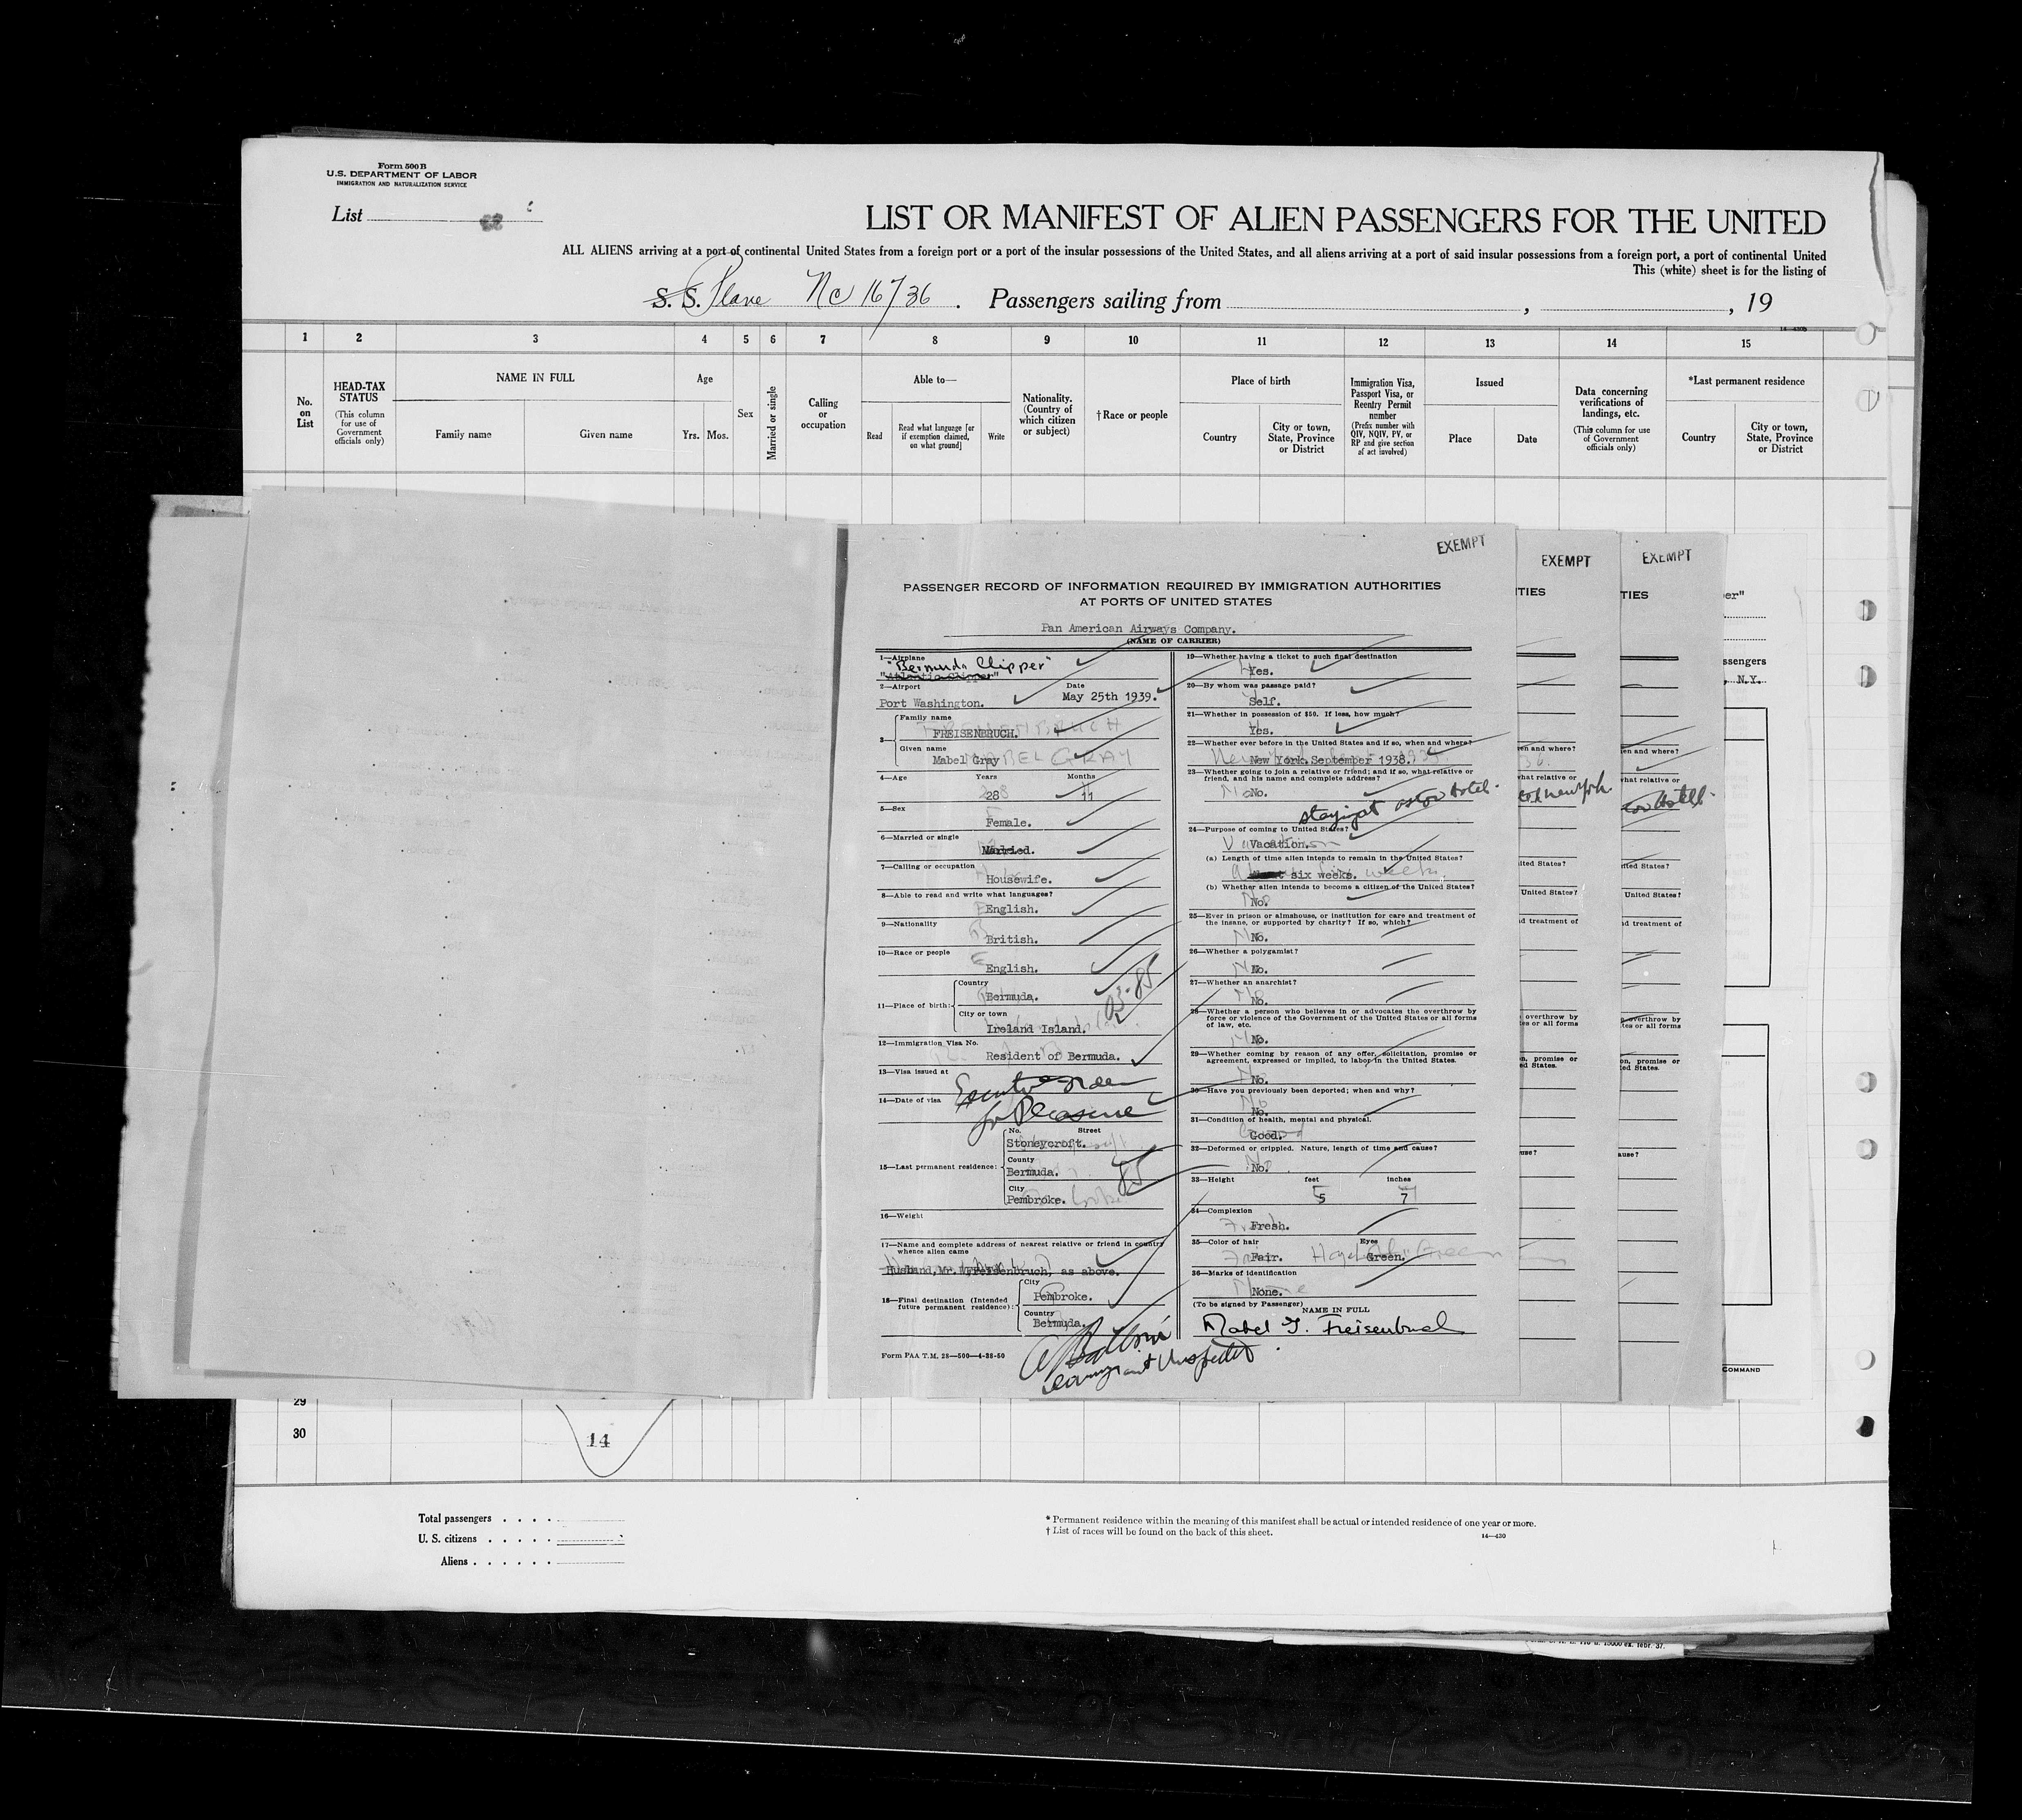 Form 500 B
U.S. DEPARTMENT OF LABOR
IMMIGRATION AND NATURALIZATION SERVICE
List
LIST OR MANIFEST OF ALIEN PASSENGERS FOR THE UNITED
ALL ALIENS arriving at a port of continental United States from a foreign port or a port of the insular possessions of the United States, and all aliens arriving at a port of said insular possessions from a foreign port, a port of continental United
This (white) sheet is for the listing of
S. S. Plane NC 16736. Passengers sailing from , , 19
1 2 3 4 5 6 7 8 9 10 11 12 13 14 15
No. on List
HEAD-TAX STATUS
(This column for use of Government officials only)
NAME IN FULL
Family name
Given name
Age
Yrs. Mos.
Sex
Married or single
Calling or occupation
Able to—
Read
Read what language [or if exemption claimed, on what ground]
Write
Nationality. (Country of which citizen or subject)
† Race or people
Place of birth
Country
City or town, State, Province or District
Immigration Visa, Passport Visa, or Reentry Permit number
(Prefix number with QIV, NQIV, PV, or RP and give section of act involved)
Issued
Place
Date
Data concerning verifications of landings, etc.
(This column for use of Government officials only)
*Last permanent residence
Country
City or town, State, Province or District
EXEMPT
EXEMPT
EXEMPT
PASSENGER RECORD OF INFORMATION REQUIRED BY IMMIGRATION AUTHORITIES
AT PORTS OF UNITED STATES
Pan American Airways Company.
(NAME OF CARRIER)
1—Airplane
"Bermuda Clipper"
"Atlantic Clipper"
2—Airport Date
Port Washington. May 25th 1939.
3— Family name
FREISENBRUCH.
Given name
Mabel Gray
4—Age Years Months
28 11
5—Sex
Female.
6—Married or single
Married.
7—Calling or occupation
Housewife.
8—Able to read and write what languages?
English.
9—Nationality
British.
10—Race or people
English.
11—Place of birth: Country
Bermuda.
City or town
Ireland Island.
12—Immigration Visa No.
Resident of Bermuda.
13—Visa issued at
14—Date of visa
for Pleasure
15—Last permanent residence: No. Street
Stoneycroft.
County
Bermuda.
City
Pembroke.
85
16—Weight
17—Name and complete address of nearest relative or friend in country whence alien came
Husband, Mr. W. Freisenbruch, as above.
18—Final destination (Intended future permanent residence): City
Pembroke.
Country
Bermuda.
Form PAA T.M. 28—500—4-38-50
19—Whether having a ticket to such final destination
Yes.
20—By whom was passage paid?
Self.
21—Whether in possession of $50. If less, how much?
Yes.
22—Whether ever before in the United States and if so, when and where?
New York. September 1938.
23—Whether going to join a relative or friend; and if so, what relative or friend, and his name and complete address?
No.
Staying at Astor Hotel.
24—Purpose of coming to United States?
Vacation.
(a) Length of time alien intends to remain in the United States?
six weeks.
(b) Whether alien intends to become a citizen of the United States?
No.
25—Ever in prison or almshouse, or institution for care and treatment of the insane, or supported by charity? If so, which?
No.
26—Whether a polygamist?
No.
27—Whether an anarchist?
No.
28—Whether a person who believes in or advocates the overthrow by force or violence of the Government of the United States or all forms of law, etc.
No.
29—Whether coming by reason of any offer, solicitation, promise or agreement, expressed or implied, to labor in the United States.
No.
30—Have you previously been deported; when and why?
No.
31—Condition of health, mental and physical.
Good.
32—Deformed or crippled. Nature, length of time and cause?
No.
33—Height feet inches
5 7
34—Complexion
Fresh.
35—Color of hair Eyes
Fair. Green.
36—Marks of identification
None.
(To be signed by Passenger)
NAME IN FULL
Mabel G. Freisenbruch
Immigrant Inspector
29
30
14
Total passengers
U. S. citizens
Aliens
* Permanent residence within the meaning of this manifest shall be actual or intended residence of one year or more.
† List of races will be found on the back of this sheet.
14—430